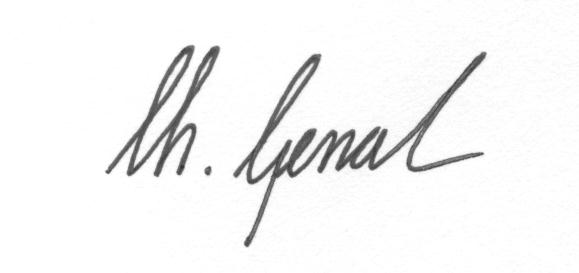 Ch. Genal